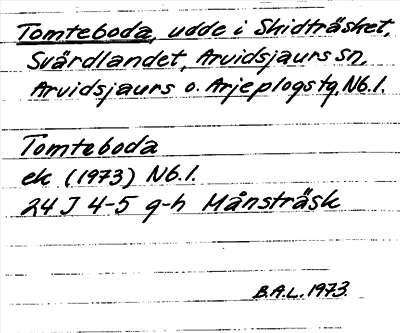 Tomteboda, udde i Skidträsket,
Svärdlandet, Arvidsjaurs sn,
Arvidsjaurs o. Arjeplogs tg, Nb.l.
Tomteboda
ek (1973) Nb.l.
24 J 4-5 g-h Månsträsk
B.A.L. 1973.